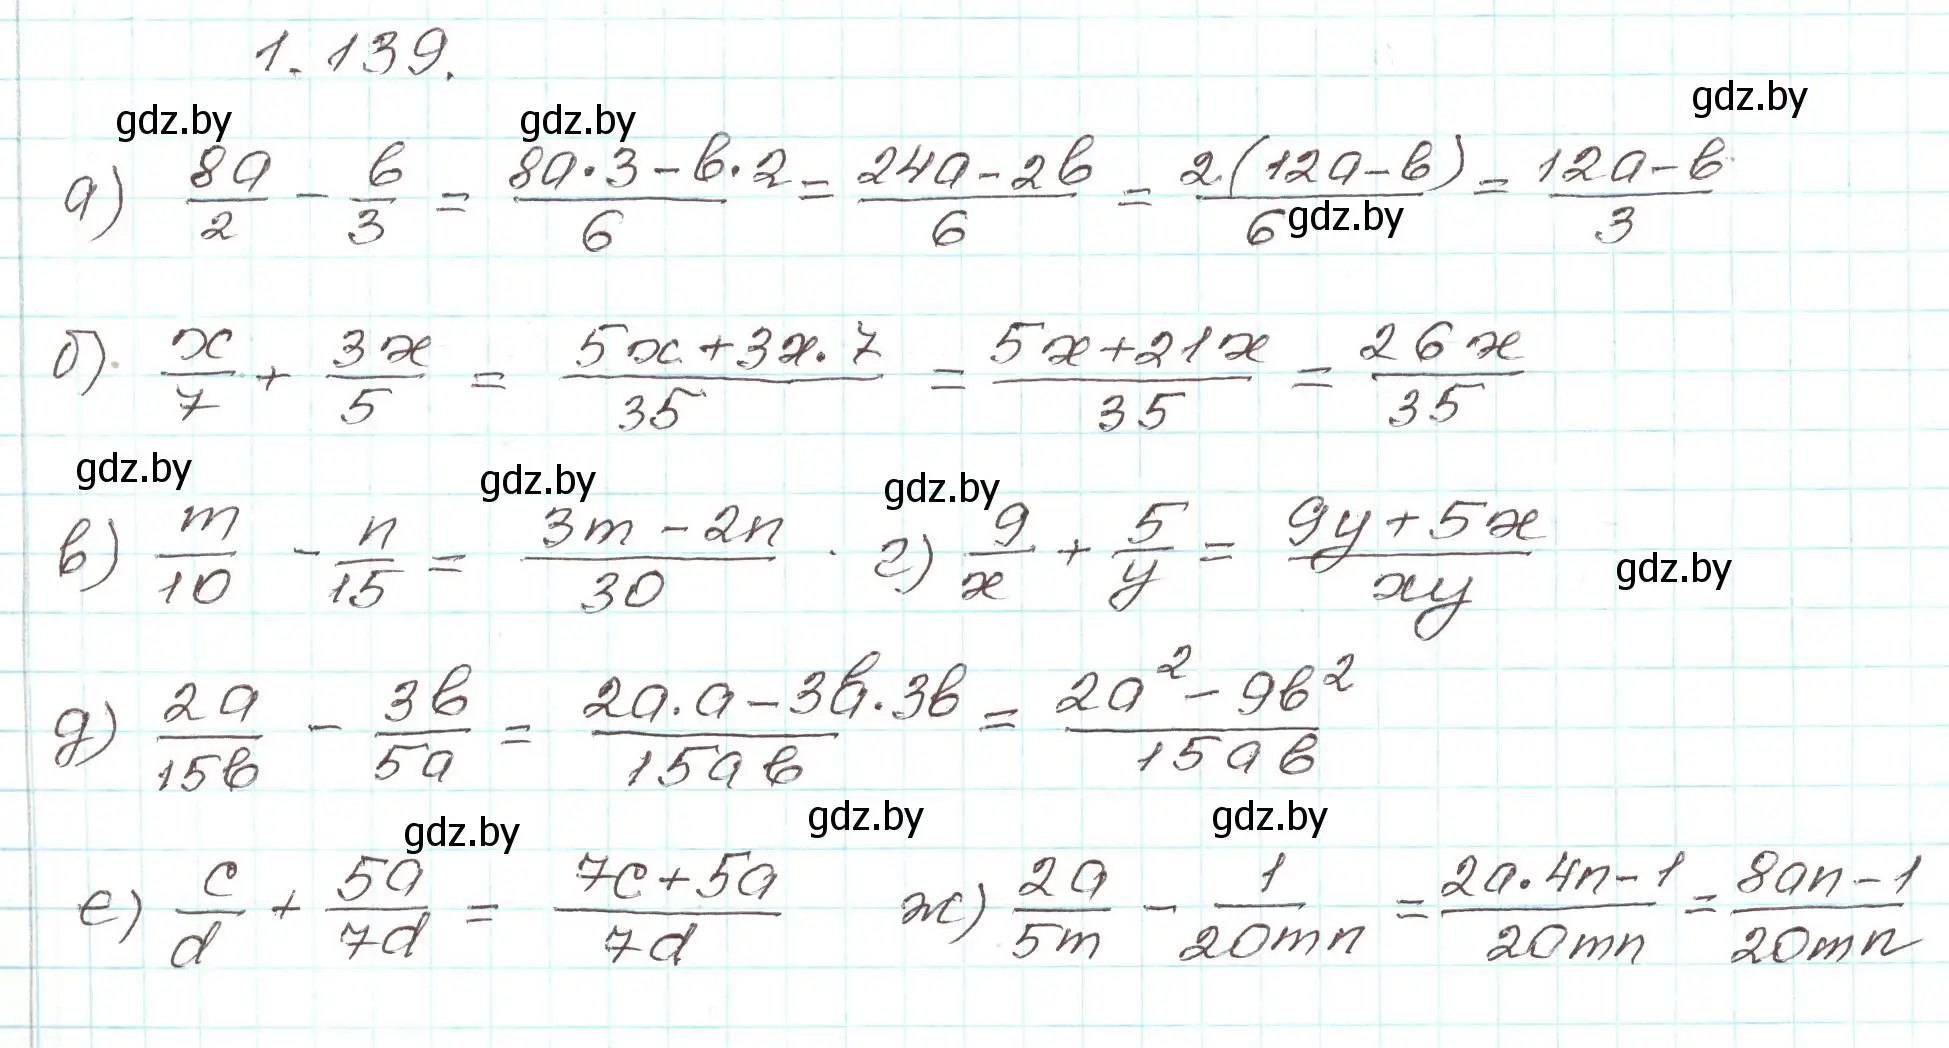 1.139.
gdz.by gdz.by gdz.by
а) 8a/2 - b/3 = (8a·3-b·2)/6 = (24a-2b)/6 = 2(12a-b)/6 = (12a-b)/3
gdz.by
б) x/7 + 3x/5 = (5x+3x·7)/35 = (5x+21x)/35 = 26x/35
gdz.by gdz.by gdz.by
в) m/10 - n/15 = (3m-2n)/30 · г) 9/x + 5/y = (9y+5x)/xy
gdz.by
д) 2a/15b - 3b/5a = (2a·a-3b·3b)/15ab = (2a²-9b²)/15ab
gdz.by gdz.by gdz.by
е) c/d + 5a/7d = (7c+5a)/7d ж) 2a/5m - 1/20mn = (2a·4n-1)/20mn = (8an-1)/20mn